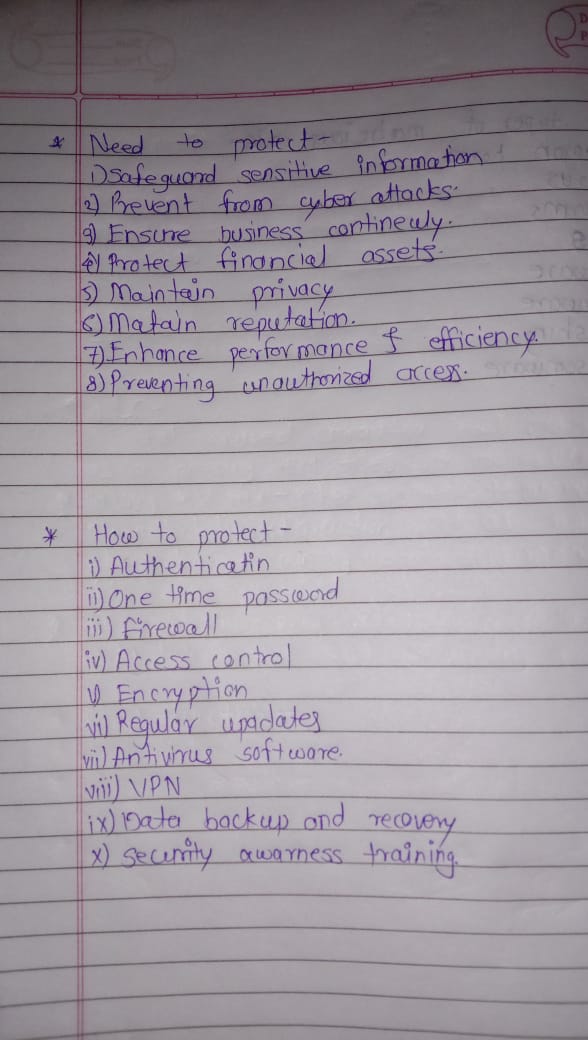 * Need to protect -
1) Safeguard sensitive information.
2) Prevent from cyber attacks.
3) Ensure business continewly.
4) Protect financial assets.
5) Maintain privacy
6) Matain reputation.
7) Enhance performance & efficiency.
8) Preventing unauthorized access.
* How to protect -
i) Authenticatin
ii) One time password
iii) firewall
iv) Access control
v) Encryption
vi) Regular upadates
vii) Antivirus software.
viii) VPN
ix) Data backup and recovery
x) security awarness training.